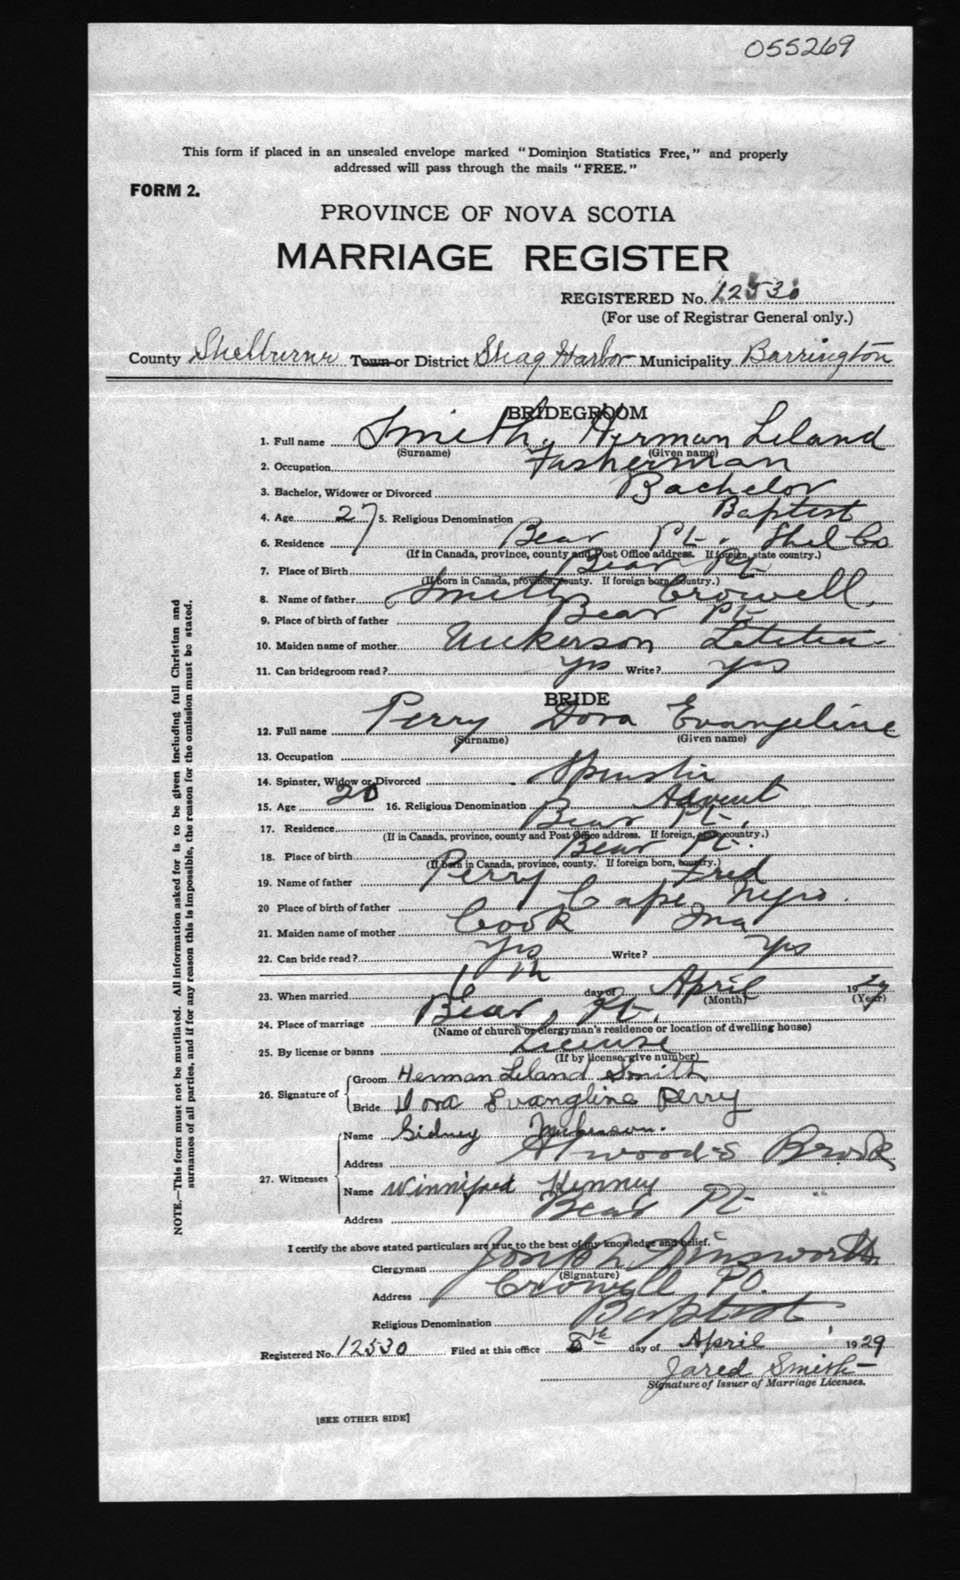 055269
This form if placed in an unsealed envelope marked "Dominion Statistics Free," and properly
addressed will pass through the mails "FREE."
FORM 2.
PROVINCE OF NOVA SCOTIA
MARRIAGE REGISTER
REGISTERED No. 12530
(For use of Registrar General only.)
County Shelburne Town or District Shag Harbor Municipality Barrington
BRIDEGROOM
1. Full name Smith, Herman Leland
(Surname) (Given name)
2. Occupation Fisherman
3. Bachelor, Widower or Divorced Bachelor
4. Age 27 5. Religious Denomination Baptist
6. Residence Bear Pt. Shel Co
(If in Canada, province, county and Post Office address. If foreign, state country.)
7. Place of Birth Bear Pt
(If born in Canada, province, county. If foreign born, country.)
8. Name of father Smith Crowell
9. Place of birth of father Bear Pt
10. Maiden name of mother Nickerson Letitia
11. Can bridegroom read? yes Write? yes
BRIDE
12. Full name Perry Dora Evangeline
(Surname) (Given name)
13. Occupation
14. Spinster, Widow or Divorced Spinster
15. Age 20 16. Religious Denomination Advent
17. Residence Bear Pt.
(If in Canada, province, county and Post Office address. If foreign, state country.)
18. Place of birth Bear Pt.
(If born in Canada, province, county. If foreign born, country.)
19. Name of father Perry Fred
20 Place of birth of father Cape Negro.
21. Maiden name of mother Cook Ina
22. Can bride read? Yes Write? Yes
23. When married 6th day of April 1929
(Month) (Year)
24. Place of marriage Bear Pt.
(Name of church or clergyman's residence or location of dwelling house)
25. By license or banns License
(If by license, give number)
26. Signature of Groom Herman Leland Smith
Bride Dora Evangline Perry
27. Witnesses
Name Sidney
Address Atwoods Brook
Name Winnifred Kenney
Address Bear Pt
I certify the above stated particulars are true to the best of my knowledge and belief.
Clergyman Ainsworth
(Signature)
Address Crowell PO.
Religious Denomination Baptist
Registered No. 12530 Filed at this office 8th day of April 1929
Jared Smith
Signature of Issuer of Marriage Licenses.
[SEE OTHER SIDE]
NOTE.—This form must not be mutilated. All information asked for is to be given including full Christian and
surnames of all parties, and if for any reason this is impossible, the reason for the omission must be stated.